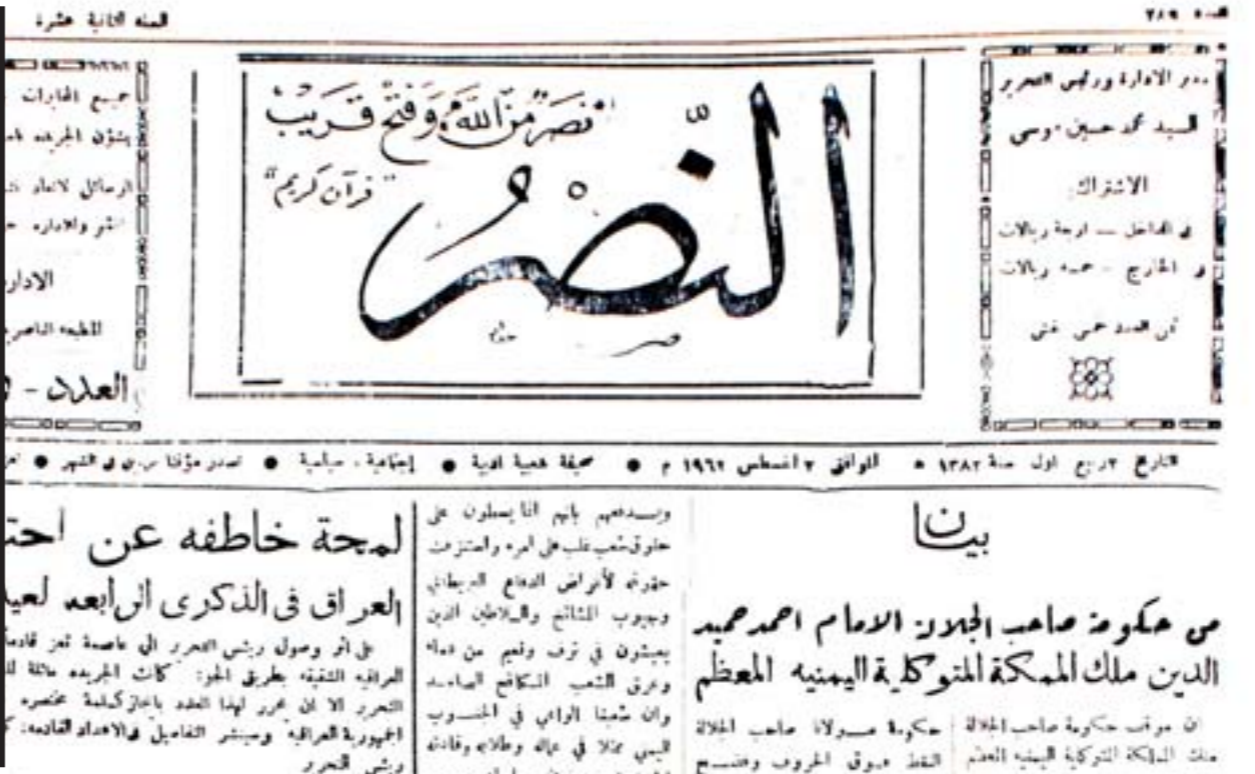 السنه الثانية عشرة
مدير الادارة ورئيس التحرير
السيد محمد حسين موسى
الاشتراك
فى الداخل — اربعة ريالات
فى الخارج - خمسه ريالات
ثمن العدد خمس بقش
نصر من الله وفتح قريب
"قرآن كريم"
النصر
جميع المخابرات
بشؤن الجريده
الرسائل لاتعاد
النشر والاداره
الادار
المطبعه الناصر
العدد -
التاريخ ٢ ربيع اول سنة ١٣٨٢ • الموافق ٢ اغسطس ١٩٦٢ م • صحيفة شعبية ادبية • إجتماعية . سياسية • تصدر مؤقتا مرتين فى الشهر •
بيان
من حكومة صاحب الجلالة الامام احمد حميد
الدين ملك المملكة المتوكلية اليمنيه المعظم
ان موقف حكومة صاحب الجلالة
ملك المملكة المتوكلية اليمنيه المعظم
حكومة مولانا صاحب الجلالة
النقط فوق الحروف
بانهم انما يسطون على
حقوق شعب غلب على امره
حقوقه لأغراض الدفاع البريطاني
وجيوب المشائخ والسلاطين الذين
يعيشون في ترف ونعيم من دماء
وعرق الشعب المكافح
وان شعبنا الواعي في الجنوب
اليمني ممثلا في عماله وطلابه وقادته
لمحة خاطفه عن احت
العراق فى الذكرى الرابعه لعيد
على اثر وصول رئيس التحرير الى عاصمة تعز قادما
العراقيه الشقيقه بطريق الجو: كانت الجريده ماثلة
التحرير الا ان يحرر لهذا العدد بايجاز كلمة مختصره
الجمهورية العراقية وسينشر التفاصيل فى الاعداد القادمه:
رئيس التحرير